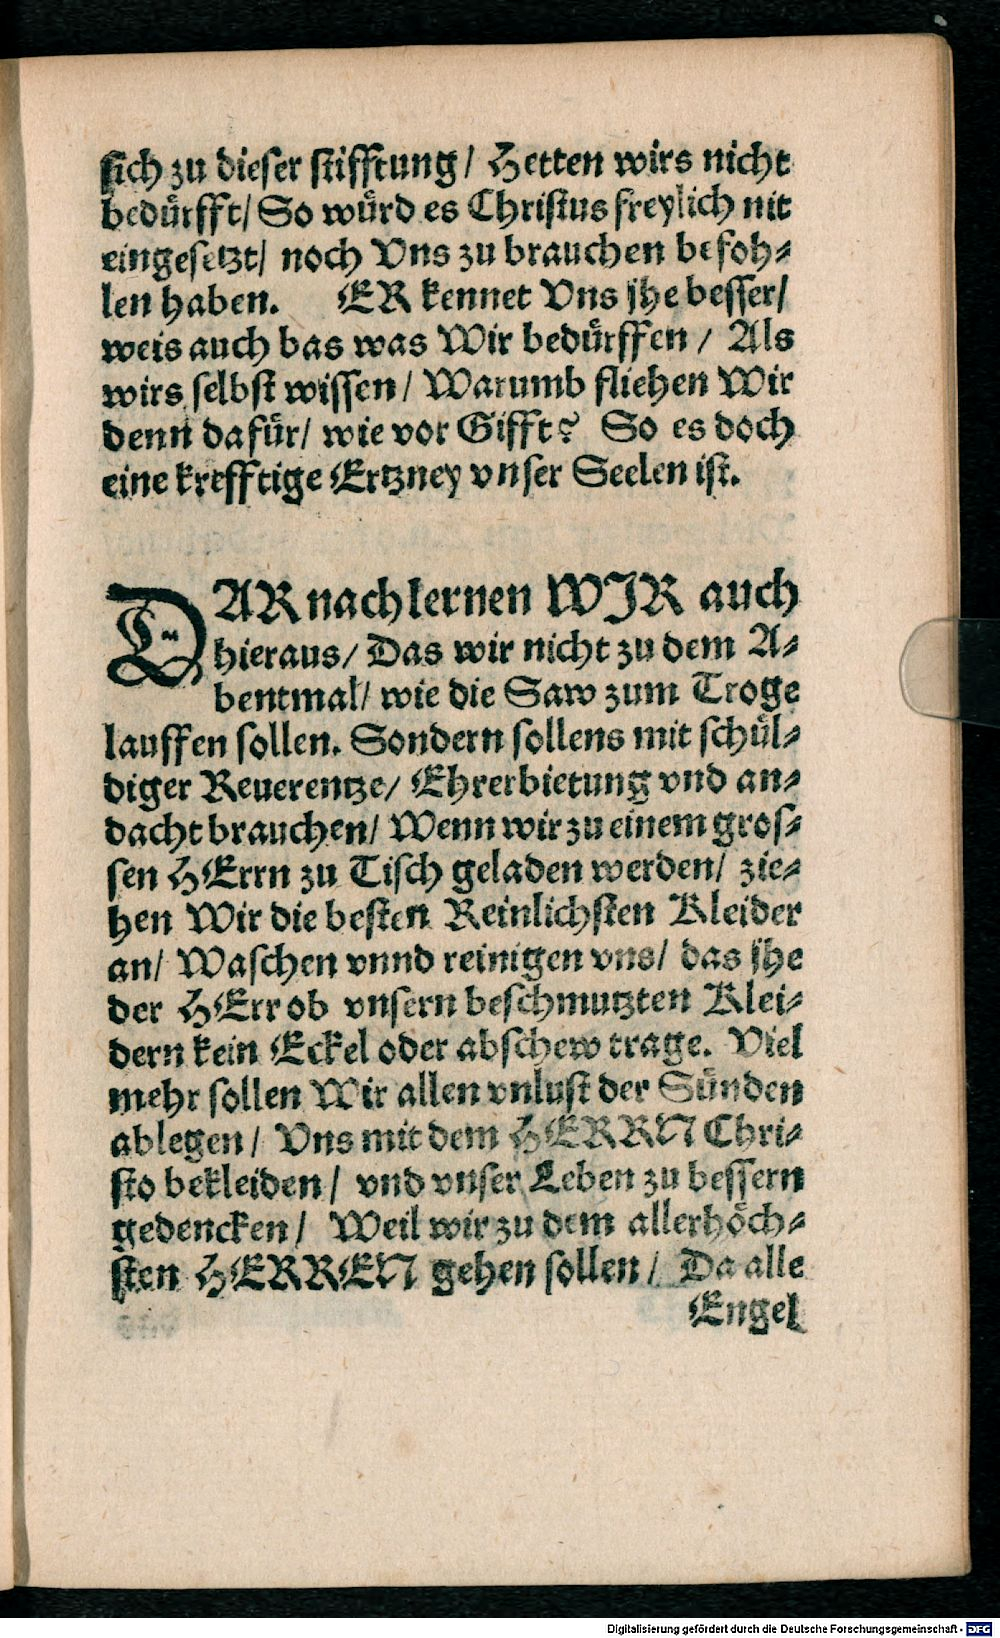 sich zu dieser stifftung/ Hetten wirs nicht
bedürfft/ So würd es Christus freylich nit
eingesetzt/ noch Vns zu brauchen befoh-
len haben. ER kennet Vns jhe besser/
weis auch bas was Wir bedürffen / Als
wirs selbst wissen/ Warumb fliehen Wir
denn dafür/ wie vor Gifft? So es doch
eine krefftige Ertzney vnser Seelen ist.
DARnach lernen WJR auch
hieraus/ Das wir nicht zu dem A-
bentmal/ wie die Saw zum Troge
lauffen sollen. Sondern sollens mit schül-
diger Reuerentze/ Ehrerbietung vnd an-
dacht brauchen/ Wenn wir zu einem gros-
sen HErrn zu Tisch geladen werden/ zie-
hen Wir die besten Reinlichsten Kleider
an/ Waschen vnnd reinigen vns/ das jhe
der HErr ob vnsern beschmutzten Klei-
dern kein Eckel oder abschew trage. Viel
mehr sollen Wir allen vnlust der Sünden
ablegen / Vns mit dem HERRN Chri-
sto bekleiden / vnd vnser Leben zu bessern
gedencken / Weil wir zu dem allerhöch-
sten HERREN gehen sollen / Da alle
Engel
Digitalisierung gefördert durch die Deutsche Forschungsgemeinschaft - DFG